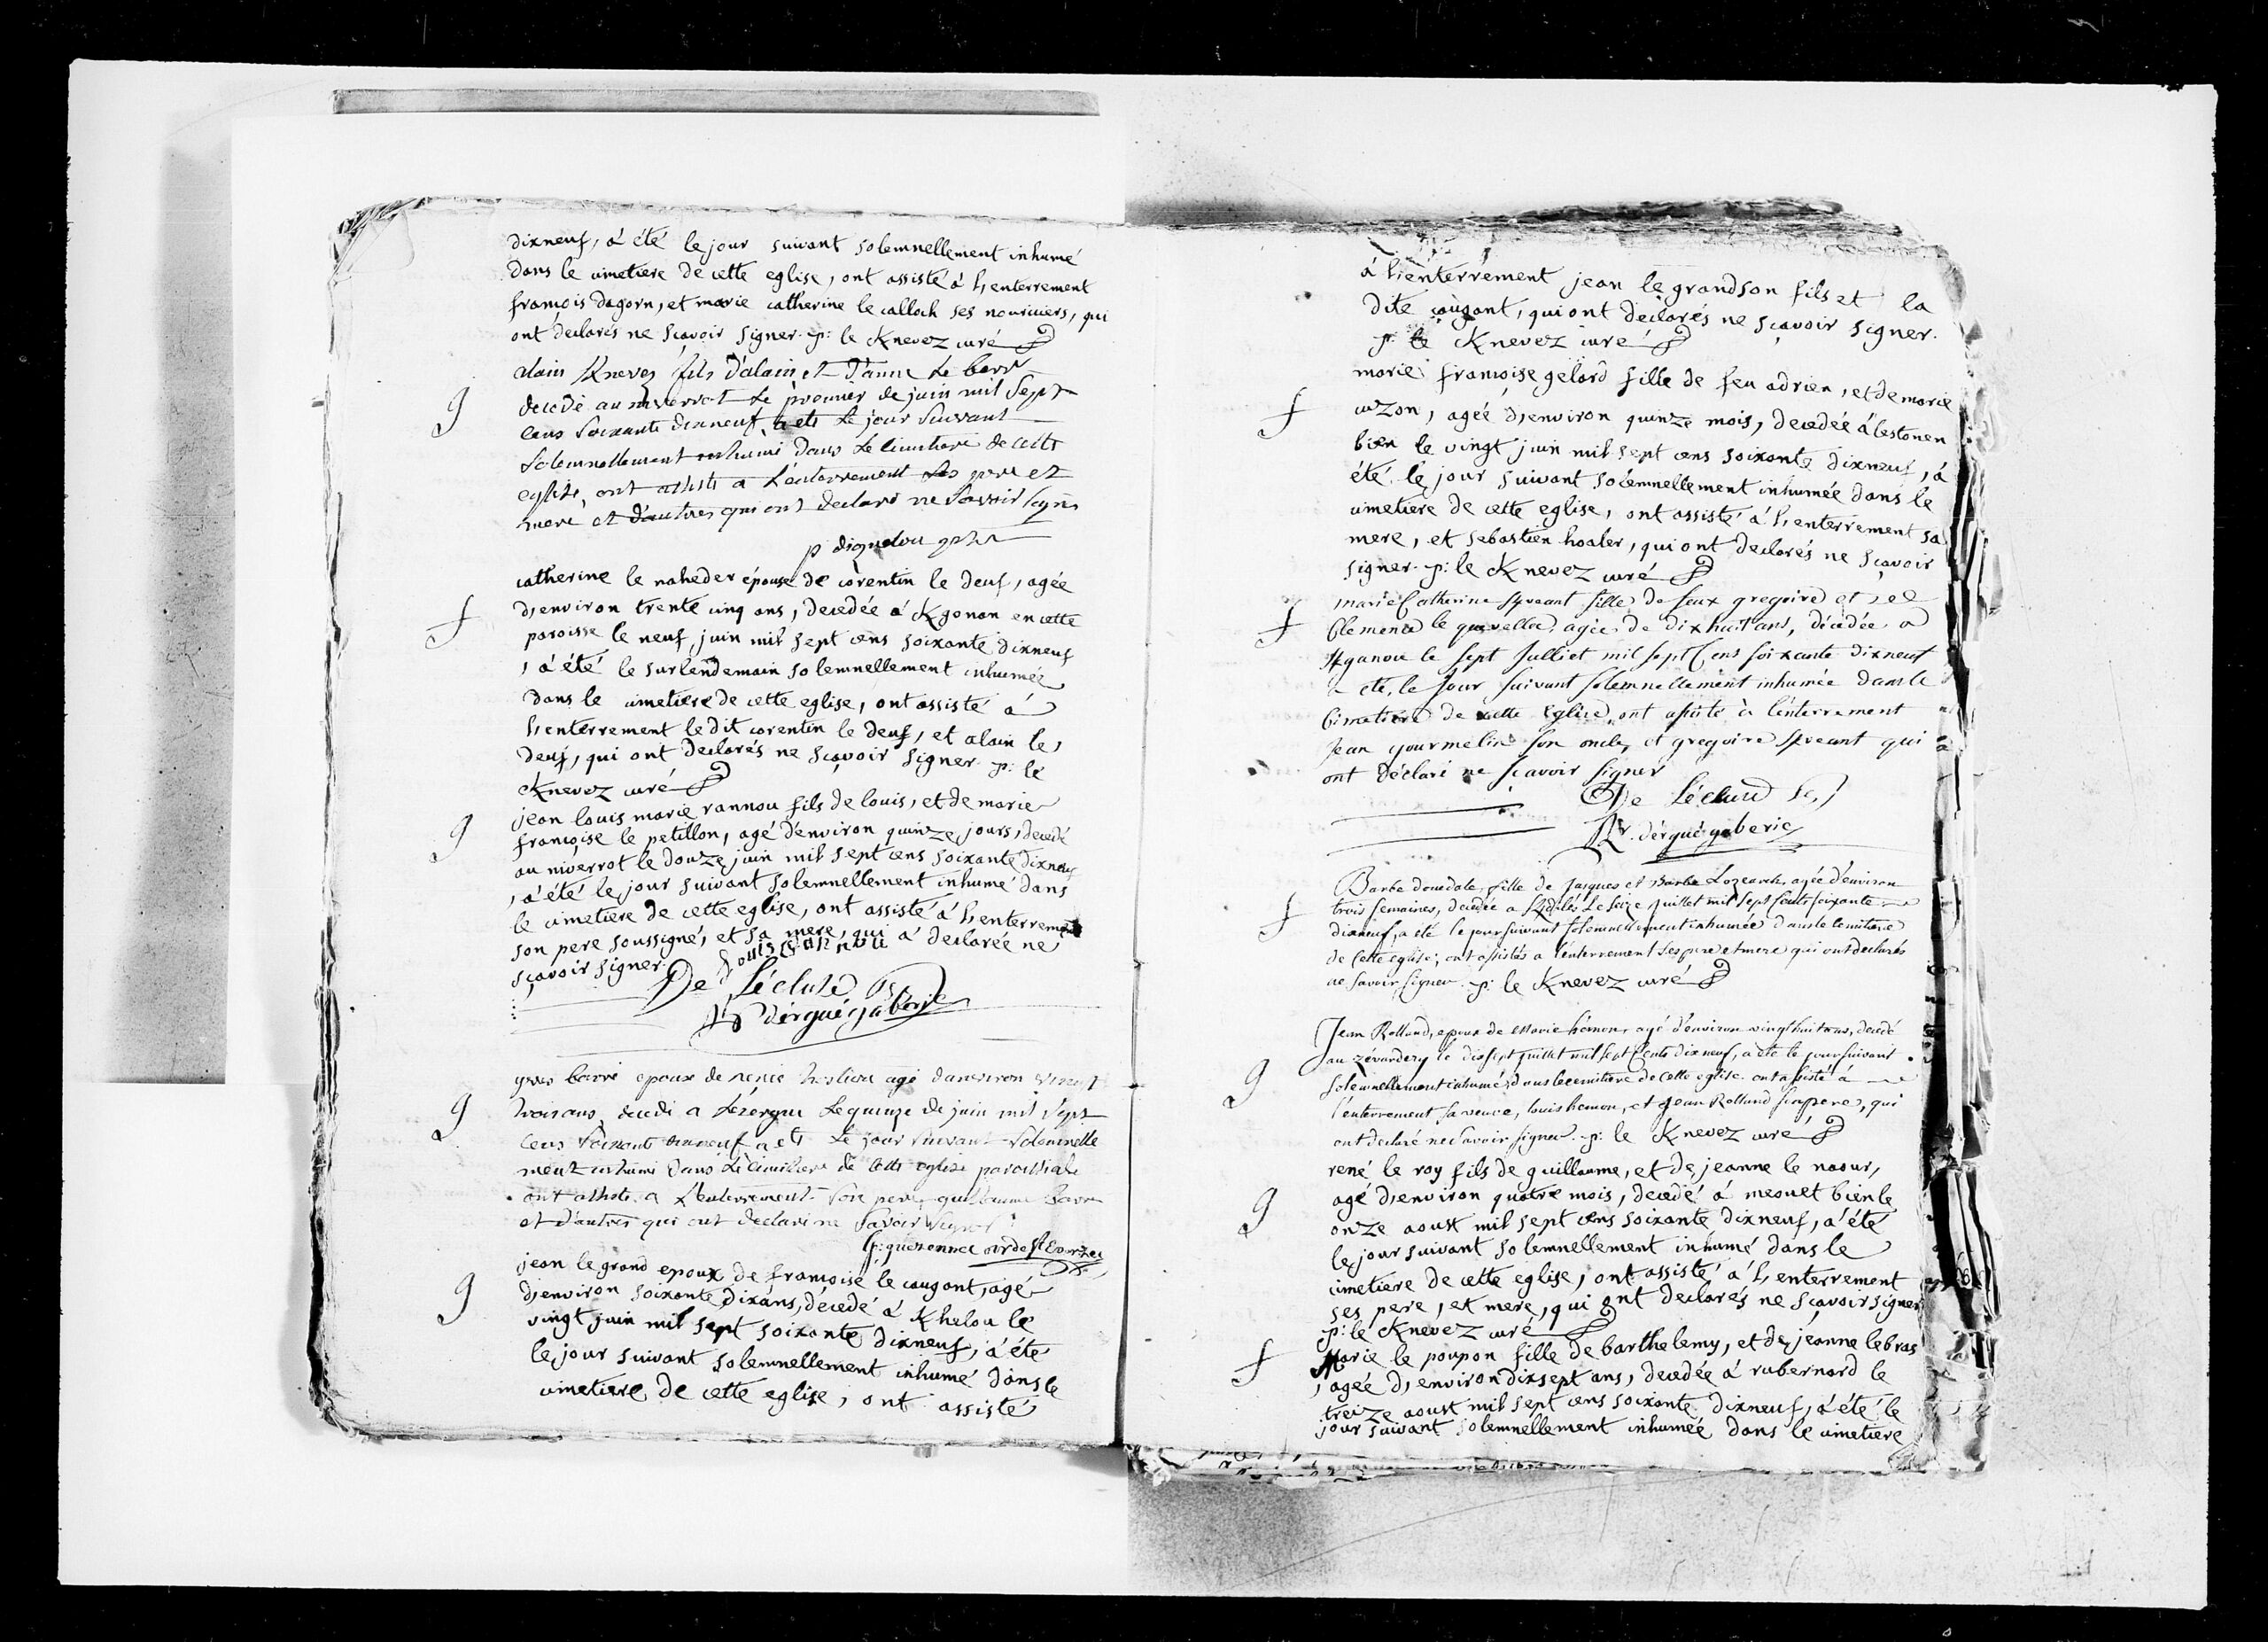 dixneuf, á été le jour suivant solemnellement inhumé
dans le cimetiere de cette eglise, ont assisté á l,enterrement
françois dagorn, et marie catherine le calloch ses nouriciers, qui
ont declarés ne sçavoir signer. p: le Knevez curé
alain Knevez fils d'alain et d'anne Le barr
g decedé au niverrot Le premier de juin mil Sept
cens Soixante dixneuf, a eté Le jour Suivant
Solemnellement inhumé dans Le Cimetiere de cette
eglise, ont assisté a L'enterrement Ses pere et
mere et d'autres qui ont declaré ne Savoir signer
catherine le naheder épouse de corentin le deuf, agée
f d,environ trente cinq ans, decedée á Kgonan en cette
paroisse le neuf juin mil sept cens soixante dixneuf
, á été le surlendemain solemnellement inhumée
dans le cimetiere de cette eglise, ont assisté á
l,enterrement le dit corentin le deuf, et alain le
deuf, qui ont declarés ne sçavoir signer p: le
Knevez curé
jean louis marie rannou fils de louis, et de marie
g françoise le petillon, agé d'environ quinze jours, decedé
au niverrot le douze juin mil sept cens soixante dixneuf
, á été le jour suivant solemnellement inhumé dans
le cimetiere de cette eglise, ont assisté á l,enterrement
son pere soussigné, et sa mere, qui á declarée ne
sçavoir signer. Louis rannou
De Lécluse
dérguégaberic
yves barré epoux de renée agé d'anviron vingt
g trois ans, decedi a Lezergue Le quinze de juin mil Sept
cens Soixante dixneuf a eté Le jour Suivant Solemnelle
ment inhumé dans Le Cimetiere de Cette eglise paroissiale
ont assisté a L'enterrement Son pere, guillaume Barré
et d'autres qui ont declaré ne Savoir Signer
jean le grand epoux de françoise le cougant, agé
g d,environ soixante dix ans, décedé á Khelou le
vingt juin mil sept soixante dixneuf, á été
le jour suivant solemnellement inhumé dans le
cimetiere de cette eglise, ont assisté
á l,enterrement jean le grand son fils et la
dite cougant, qui ont declarés ne sçavoir signer.
p: le Knevez curé
marie françoise gelard fille de feu adrien, et de marie
f cuzon, agée d,environ quinze mois, decedée á lestonen
bien le vingt juin mil sept cens soixante dixneuf, á
été le jour suivant solemnellement inhumée dans le
cimetiere de cette eglise, ont assisté á l,enterrement sa
mere, et sebastien hoaler, qui ont declarés ne sçavoir
signer. p: le Knevez curé
marie Catherine fille de feux gregoire et
f Clemence le agée de dixhuit ans, décédée a
Kganou le sept Julliet mil sept Cens soixante dixneuf
a été, le jour suivant solemnellement inhumée dans le
Cimetiere de cette Eglise, ont assisté à l'enterrement
Jean gourmelin son oncle, et gregoire qui
ont déclaré ne sçavoir signer
De Lécluse
Rr. dérguégaberic
Barbe douedale, fille de Jacques et Barbe Lozearch agée d'environ
f trois semaines, decedée a Le seize juillet mil sept Cents soixante
dixneuf, a été le jour suivant solemnellement inhumée dans le cemitiere
de Cette eglise, ont assistés a l'enterrement Ses pere et mere qui ont declarés
ne Savoir signer. p: le Knevez curé
Jean Rolland, epoux de Marie hémon, agé d'environ vingt huit ans, decedé
g au zévardery le dixsept juillet mil sept Cents dix neuf, a été le jour suivant
solemnellement inhumé dans le cemitiere de cette eglise. ont assisté á
l'enterrement sa veuve, louis hemon, et jean Rolland son pere, qui
ont declaré ne Savoir signer. p: le Knevez curé
rené le roy fils de guillaume, et de jeanne le naour,
g agé d,environ quatre mois, decedé á meouet bien le
onze aoust mil sept cens soixante dixneuf, á été
le jour suivant solemnellement inhumé dans le
cimetiere de cette eglise, ont assisté á l,enterrement
ses pere, et mere, qui ont declarés ne sçavoir signer
p: le Knevez curé
f Marie le poupon fille de barthelemy, et de jeanne le bras
, agée d,environ dixsept ans, decedée á rubernard le
treize aoust mil sept cens soixante dixneuf, á été le
jour suivant solemnellement inhumée dans le cimetiere